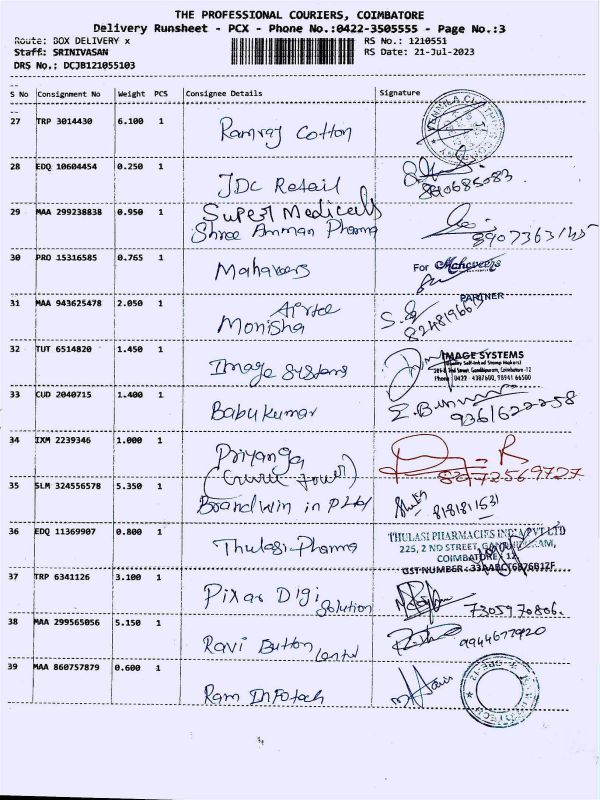 THE PROFESSIONAL COURIERS, COIMBATORE
Delivery Runsheet - PCX - Phone No.:0422-3505555 - Page No.:3
Route: BOX DELIVERY x
RS No.: 1210551
Staff: SRINIVASAN
RS Date: 21-Jul-2023
DRS No.: DCJB121055103
S No Consignment No Weight PCS Consignee Details Signature
27 TRP 3014430 6.100 1 Ramraj Cotton
28 EDQ 10604454 0.250 1 JDC Retail
890685083
29 MAA 299238838 0.950 1 Super Medicals
Shree Amman Pharma
30 PRO 15316585 0.765 1 Mahaveers For Mahaveers
PARTNER
31 MAA 943625478 2.050 1
Monisha
32 TUT 6514820 1.450 1 Image Systems IMAGE SYSTEMS
33 CUD 2040715 1.400 1 Babukumar
34 IXM 2239346 1.000 1 Priyanga
35 SLM 324556578 5.350 1
8181811531
36 EDQ 11369907 0.800 1 Thulasi Pharma THULASI PHARMACIES INDIA PVT LTD
225, 2 ND STREET,
COIMBATORE - 12
GST NUMBER:
37 TRP 6341126 3.100 1 Pixar Digi
Solution 7305970806.
38 MAA 299565056 5.150 1 Ravi Button
9944677920
39 MAA 860757879 0.600 1 Ram Infotech